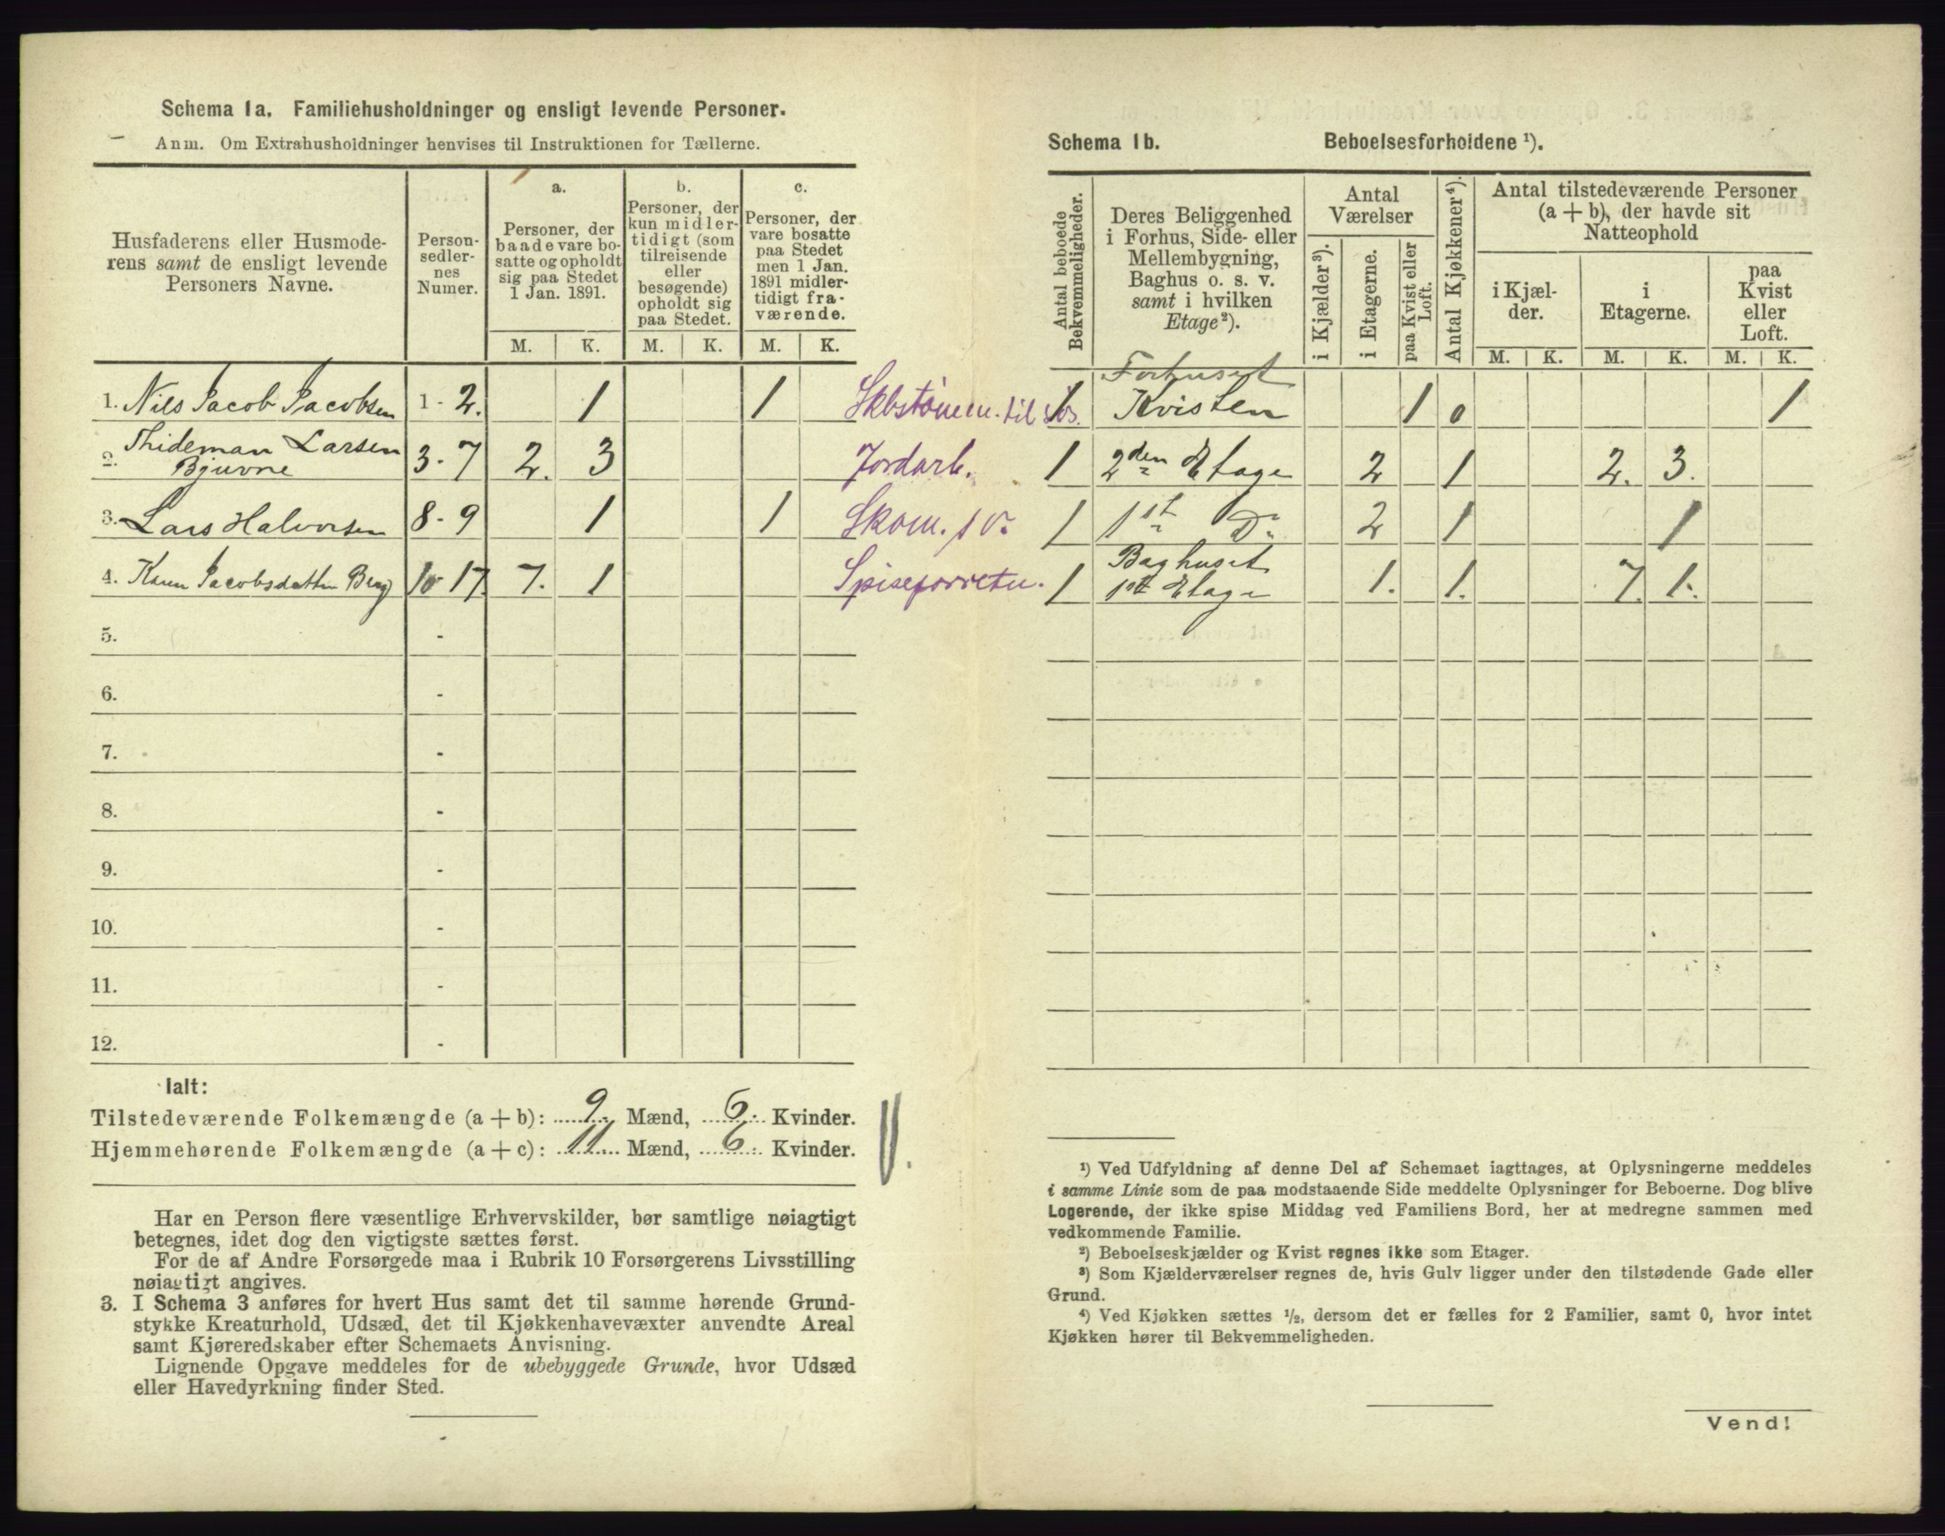 Schema 1a. Familiehusholdninger og ensligt levende Personer.
Anm. Om Extrahusholdninger henvises til Instruktionen for Tællerne.
Husfaderens eller Husmode-
rens samt de ensligt levende
Personers Navne.
Person-
sedler-
nes
Numer.
a.
Personer, der
baade vare bo-
satte og opholdt
sig paa Stedet
1 Jan. 1891.
b.
Personer, der
kun midler-
tidigt (som
tilreisende
eller
besøgende)
opholdt sig
paa Stedet.
c.
Personer, der
vare bosatte
paa Stedet
men 1 Jan.
1891 midler-
tidigt fra-
værende.
M. K. M. K. M. K.
1. Nils Jacob Jacobsen 1 - 2. 1 1 Skbstømm. til
2. Thideman Larsen
Bjuvne 3 - 7 2. 3 Jordarb.
3. Lars Halvorsen 8 - 9 1 1 Skom.
4. Karen Jacobsdatter Berg 10 - 17. 7. 1 Spiseforretn.
5. -
6. -
7. -
8. -
9. -
10. -
11. -
12. -
Ialt:
Tilstedeværende Folkemængde (a + b): 9. Mænd, 6. Kvinder.
Hjemmehørende Folkemængde (a + c): 11 Mænd, 6 Kvinder.
Har en Person flere væsentlige Erhvervskilder, bør samtlige nøiagtigt
betegnes, idet dog den vigtigste sættes først.
For de af Andre Forsørgede maa i Rubrik 10 Forsørgerens Livsstilling
nøiagtigt angives.
3. I Schema 3 anføres for hvert Hus samt det til samme hørende Grund-
stykke Kreaturhold, Udsæd, det til Kjøkkenhavevæxter anvendte Areal
samt Kjøreredskaber efter Schemaets Anvisning.
Lignende Opgave meddeles for de ubebyggede Grunde, hvor Udsæd
eller Havedyrkning finder Sted.
Schema 1b. Beboelsesforholdene ¹).
Antal beboede
Bekvemmeligheder.
Deres Beliggenhed
i Forhus, Side- eller
Mellembygning,
Baghus o. s. v.
samt i hvilken
Etage²).
Antal
Værelser
i Kjælder³).
i Etagerne.
paa Kvist eller
Loft.
Antal Kjøkkener⁴).
Antal tilstedeværende Personer
(a + b), der havde sit
Natteophold
i Kjæl-
der.
i
Etagerne.
paa
Kvist
eller
Loft.
M. K. M. K. M. K.
1 Forhuset
Kvisten 1 0 1
1 2den Etage 2 1 2. 3.
1 1st Do 2 1 1
1 Baghuset
1st Etage 1. 1. 7. 1.
¹) Ved Udfyldning af denne Del af Schemaet iagttages, at Oplysningerne meddeles
i samme Linie som de paa modstaaende Side meddelte Oplysninger for Beboerne. Dog blive
Logerende, der ikke spise Middag ved Familiens Bord, her at medregne sammen med
vedkommende Familie.
²) Beboelseskjælder og Kvist regnes ikke som Etager.
³) Som Kjælderværelser regnes de, hvis Gulv ligger under den tilstødende Gade eller
Grund.
⁴) Ved Kjøkken sættes ½, dersom det er fælles for 2 Familier, samt 0, hvor intet
Kjøkken hører til Bekvemmeligheden.
Vend!